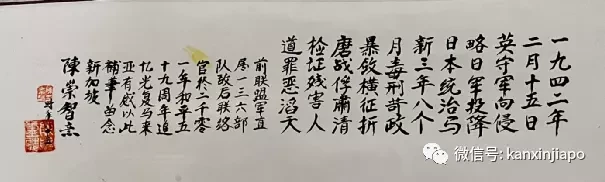 一九四二年
二月十五日
英守军向侵
略日军投降
日本统治马
新三年八个
月毒刑苛政
暴敛横征折
磨战俘肃清
检证残害人
道罪恶滔天
前联盟军直
属一三六部
队政后联络
官於二千零
一年和平五
十九周年追
忆光复马来
亚有感以此
補留念
新加坡
陳崇智志
微信号: kanxinjiapo